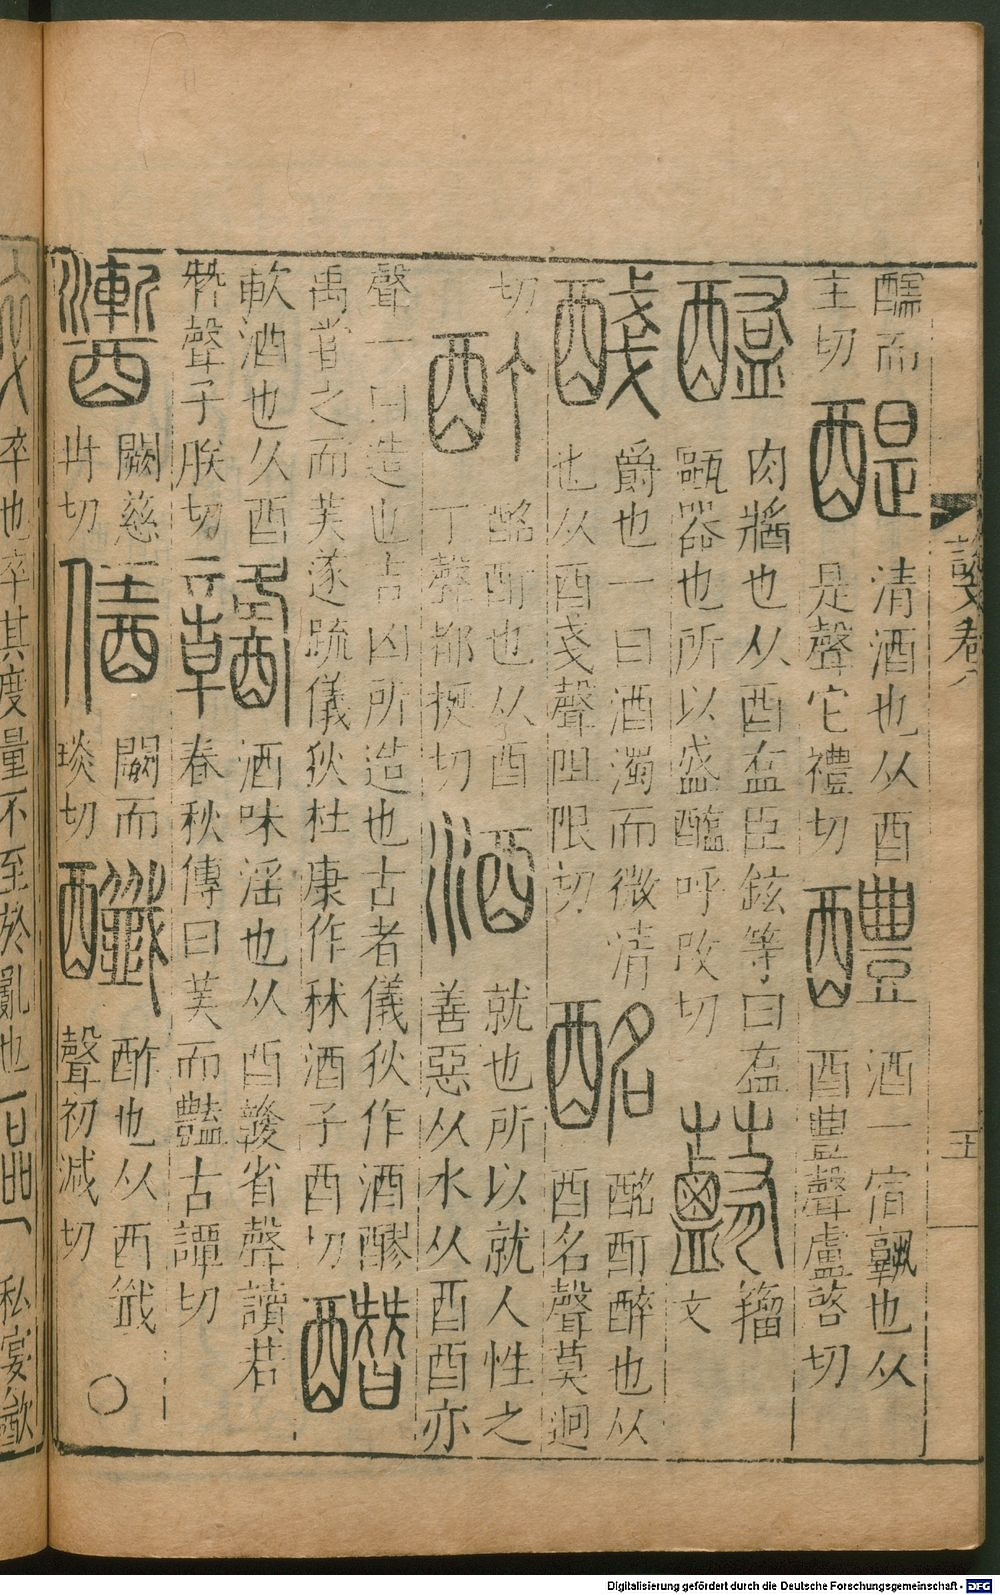 醹而主切
醍
清酒也从酉是聲它禮切
醴
酒一宿孰也从酉豊聲盧啓切
醢
肉牆也从酉𥁓臣鉉等曰𥁓甌器也所以盛醢呼改切
籀文
醆
爵也一曰酒濁而微清也从酉戔聲阻限切
酩
酩酊醉也从酉名聲莫迥切
酊
酩酊也从酉丁聲都挺切
酒
就也所以就人性之善惡从水从酉酉亦聲一曰造也吉凶所造也古者儀狄作酒醪禹嘗之而美遂疏儀狄杜康作秫酒子酉切
軟酒也从酉兓聲子朕切
酒味淫也从酉省聲讀若春秋傳曰美而豔古譚切
闕慈冉切
闕而琰切
酢也从西韱聲初減切
說文卷八
卒也卒其度量不至於亂也一曰
私宴飲
Digitalisierung gefördert durch die Deutsche Forschungsgemeinschaft - DFG